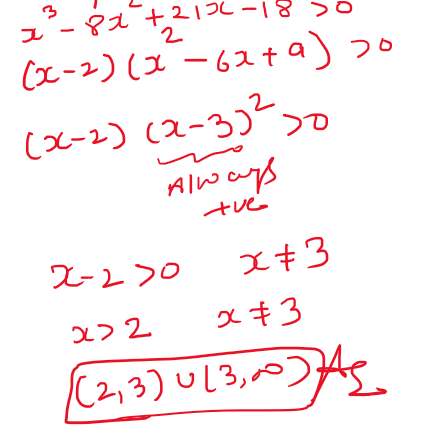 x³ - 8x² + 21x - 18 > 0
(x-2) (x² - 6x + 9) > 0
(x-2) (x-3)² > 0
Always
+ve
x-2 > 0 x ≠ 3
x > 2 x ≠ 3
(2,3) ∪ (3,∞)